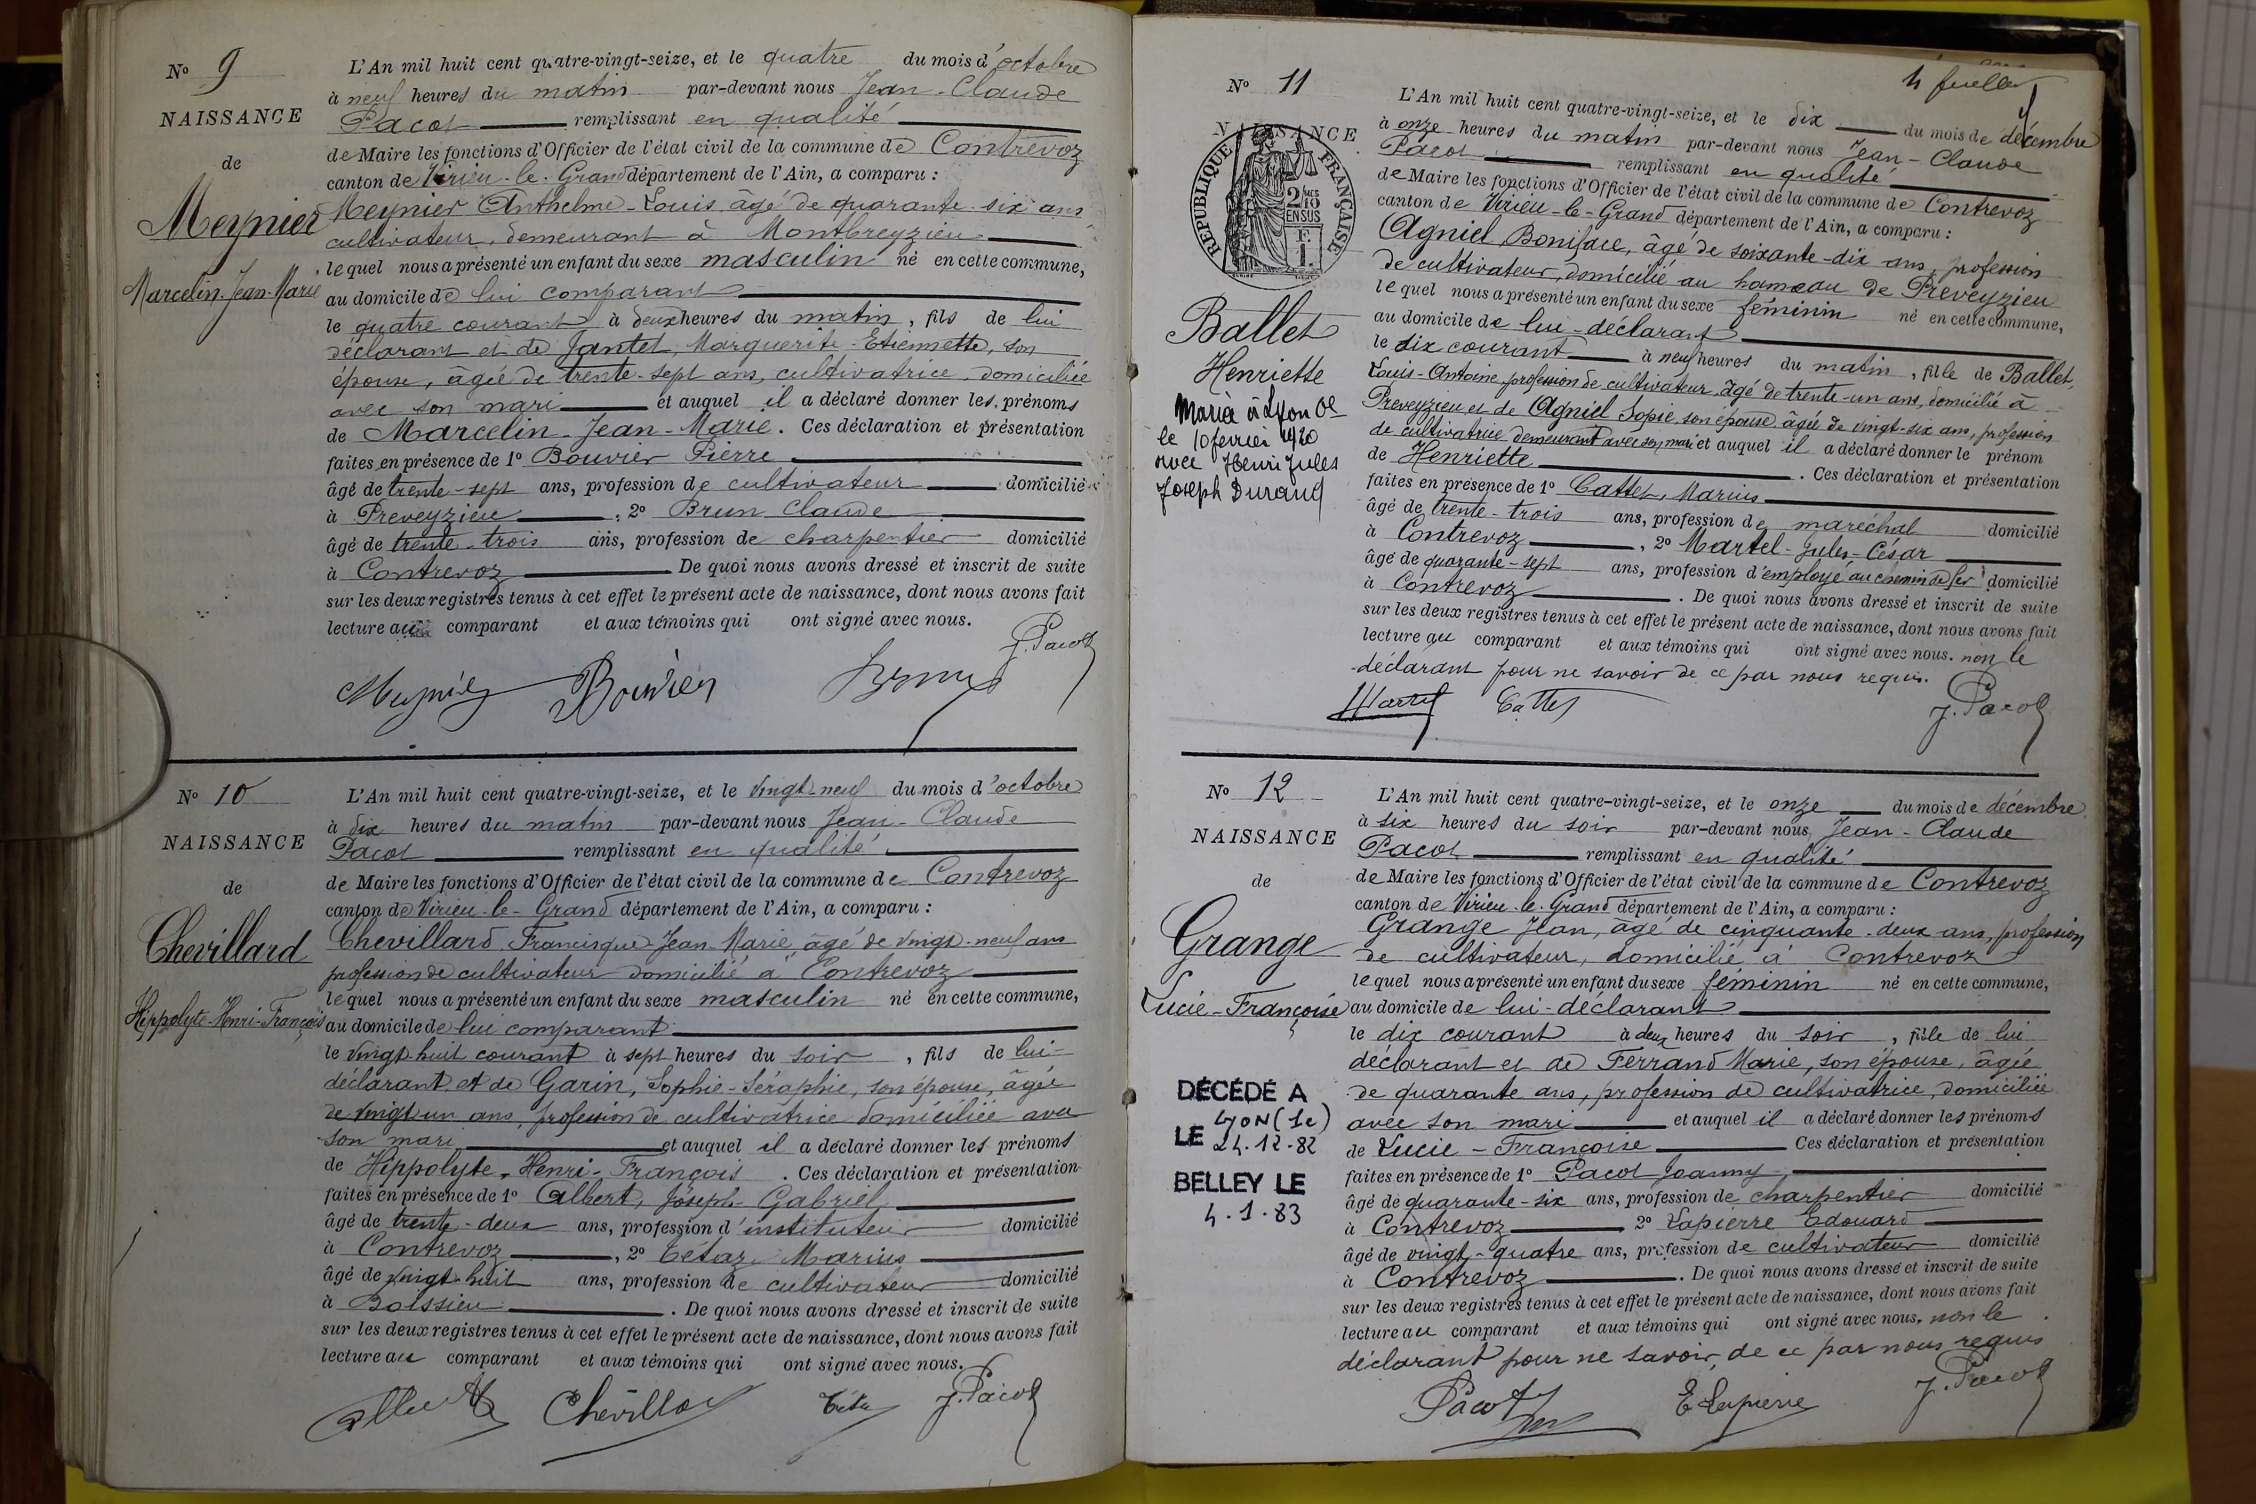 N° 9
NAISSANCE
de
Meynier
Marcelin-Jean-Marie
L'An mil huit cent quatre-vingt-seize, et le quatre du mois d'octobre
à neuf heures du matin par-devant nous Jean-Claude
Pacot remplissant en qualité
de Maire les fonctions d'Officier de l'état civil de la commune de Contrevoz
canton de Virieu-le-Grand département de l'Ain, a comparu :
Meynier Anthelme-Louis, âgé de quarante-six ans
cultivateur, demeurant à Montbreyzieu
lequel nous a présenté un enfant du sexe masculin né en cette commune,
au domicile de lui comparant
le quatre courant à deux heures du matin, fils de lui
déclarant et de Jantet, Marguerite-Etiennette, son
épouse, âgée de trente-sept ans, cultivatrice, domiciliée
avec son mari et auquel il a déclaré donner les prénoms
de Marcelin-Jean-Marie. Ces déclaration et présentation
faites en présence de 1° Bouvier Pierre
âgé de trente-sept ans, profession de cultivateur domicilié
à Preveyzieu, 2° Brun Claude
âgé de trente-trois ans, profession de charpentier domicilié
à Contrevoz De quoi nous avons dressé et inscrit de suite
sur les deux registres tenus à cet effet le présent acte de naissance, dont nous avons fait
lecture au comparant et aux témoins qui ont signé avec nous.
J. Pacot
Meynier Bouvier Brun
N° 10
NAISSANCE
de
Chevillard
Hippolyte-Henri-François
L'An mil huit cent quatre-vingt-seize, et le vingt-neuf du mois d'octobre
à dix heures du matin par-devant nous Jean-Claude
Pacot remplissant en qualité
de Maire les fonctions d'Officier de l'état civil de la commune de Contrevoz
canton de Virieu-le-Grand département de l'Ain, a comparu :
Chevillard Francisque-Jean-Marie âgé de vingt-neuf ans
profession de cultivateur domicilié à Contrevoz
lequel nous a présenté un enfant du sexe masculin né en cette commune,
au domicile de lui comparant
le vingt-huit courant à sept heures du soir, fils de lui-
déclarant et de Garin, Sophie-Séraphie, son épouse, âgée
de vingt un ans, profession de cultivatrice domiciliée avec
son mari et auquel il a déclaré donner les prénoms
de Hippolyte-Henri-François. Ces déclaration et présentation
faites en présence de 1° Albert, Joseph-Gabriel
âgé de trente-deux ans, profession d'instituteur domicilié
à Contrevoz, 2° Tétaz Marius
âgé de vingt-huit ans, profession de cultivateur domicilié
à Boissieu. De quoi nous avons dressé et inscrit de suite
sur les deux registres tenus à cet effet le présent acte de naissance, dont nous avons fait
lecture au comparant et aux témoins qui ont signé avec nous.
Albert Chevillard Tétaz J. Pacot
4 feuillet
N° 11
NAISSANCE
RÉPUBLIQUE FRANÇAISE
2/10
EN SUS
F.
1.
Ballet
Henriette
Marié à Lyon 6e
le 10 fevrier 1920
avec Henri Jules
Joseph Durand
L'An mil huit cent quatre-vingt-seize, et le dix du mois de décembre
à onze heures du matin par-devant nous Jean-Claude
Pacot remplissant en qualité
de Maire les fonctions d'Officier de l'état civil de la commune de Contrevoz
canton de Virieu-le-Grand département de l'Ain, a comparu :
Agniel Boniface, âgé de soixante-dix ans, profession
de cultivateur, domicilié au hameau de Preveyzieu
lequel nous a présenté un enfant du sexe féminin né en cette commune,
au domicile de lui-déclarant
le dix courant à neuf heures du matin, fille de Ballet,
Louis-Antoine, profession de cultivateur, âgé de trente-un ans, domicilié à
Preveyzieu et de Agniel Sopie son épouse âgée de vingt-six ans, profession
de cultivatrice demeurant avec son mari et auquel il a déclaré donner le prénom
de Henriette. Ces déclaration et présentation
faites en présence de 1° Cattet, Marius
âgé de trente-trois ans, profession de maréchal domicilié
à Contrevoz, 2° Martel-Jules-César
âgé de quarante-sept ans, profession d'employé au chemin de fer domicilié
à Contrevoz. De quoi nous avons dressé et inscrit de suite
sur les deux registres tenus à cet effet le présent acte de naissance, dont nous avons fait
lecture au comparant et aux témoins qui ont signé avec nous. non le
déclarant pour ne savoir de ce par nous requis.
Martel Cattet J. Pacot
N° 12
NAISSANCE
de
Grange
Lucie-Françoise
DÉCÉDÉ A
LYON (1e)
LE 24.12-82
BELLEY LE
4.1.83
L'An mil huit cent quatre-vingt-seize, et le onze du mois de décembre
à six heures du soir par-devant nous Jean-Claude
Pacot remplissant en qualité
de Maire les fonctions d'Officier de l'état civil de la commune de Contrevoz
canton de Virieu-le-Grand département de l'Ain, a comparu :
Grange Jean, âgé de cinquante-deux ans, profession
de cultivateur, domicilié à Contrevoz
lequel nous a présenté un enfant du sexe féminin né en cette commune,
au domicile de lui-déclarant
le dix courant à deux heures du soir, fille de lui
déclarant et de Ferrand Marie, son épouse, âgée
de quarante ans, profession de cultivatrice, domiciliée
avec son mari et auquel il a déclaré donner les prénoms
de Lucie-Françoise Ces déclaration et présentation
faites en présence de 1° Pacot Joanny
âgé de quarante-six ans, profession de charpentier domicilié
à Contrevoz 2° Lapierre Edouard
âgé de vingt-quatre ans, profession de cultivateur domicilié
à Contrevoz. De quoi nous avons dressé et inscrit de suite
sur les deux registres tenus à cet effet le présent acte de naissance, dont nous avons fait
lecture au comparant et aux témoins qui ont signé avec nous. non le
déclarant pour ne savoir, de ce par nous requis
Pacot E Lapierre J. Pacot